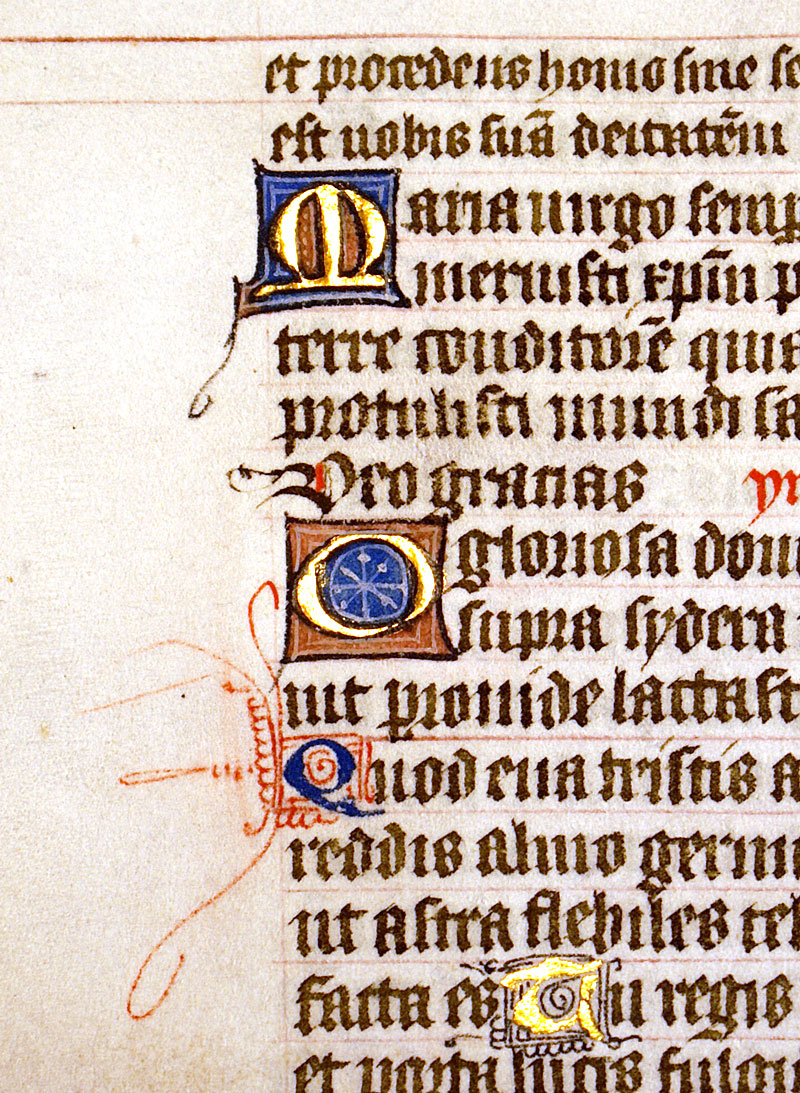 et procedens homo sine se
est nobis suã deitatẽm
Maria uirgo semp
meruisti xp̄m p
terre conditorẽ quia
protulisti mundi sa
Deo gracias yn
O gloriosa dom
supra sydera
uit prouide lactast
Quod eua tristis a
reddis almo germi
ut astra flebiles cel
facta es Tu regis
et porta lucis fulgi